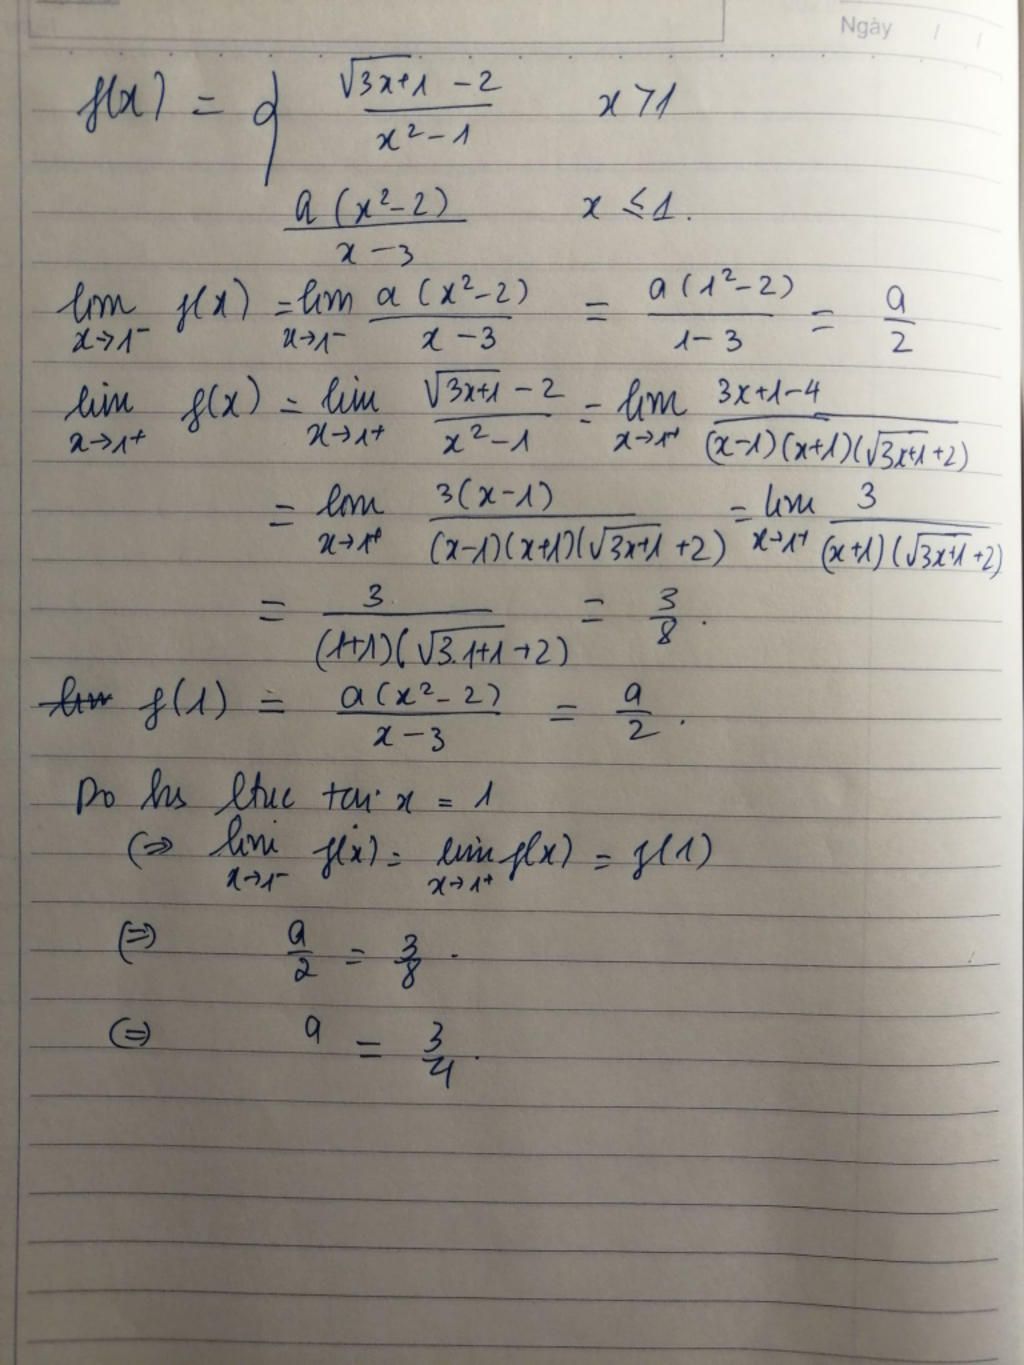 Ngày / /
f(x) = { (√(3x+1) - 2)/(x² - 1) x > 1
a(x² - 2)/(x - 3) x ≤ 1.
lim x→1⁻ f(x) = lim x→1⁻ a(x² - 2)/(x - 3) = a(1² - 2)/(1 - 3) = a/2
lim x→1⁺ f(x) = lim x→1⁺ (√(3x+1) - 2)/(x² - 1) = lim x→1⁺ (3x+1-4)/((x-1)(x+1)(√(3x+1)+2))
= lim x→1⁺ 3(x-1)/((x-1)(x+1)(√(3x+1)+2)) = lim x→1⁺ 3/((x+1)(√(3x+1)+2))
= 3/((1+1)(√(3.1+1)+2)) = 3/8.
f(1) = a(x² - 2)/(x - 3) = a/2.
Do hs ltuc tại x = 1
(=> lim x→1⁻ f(x) = lim x→1⁺ f(x) = f(1)
(=) a/2 = 3/8.
(=) a = 3/4.